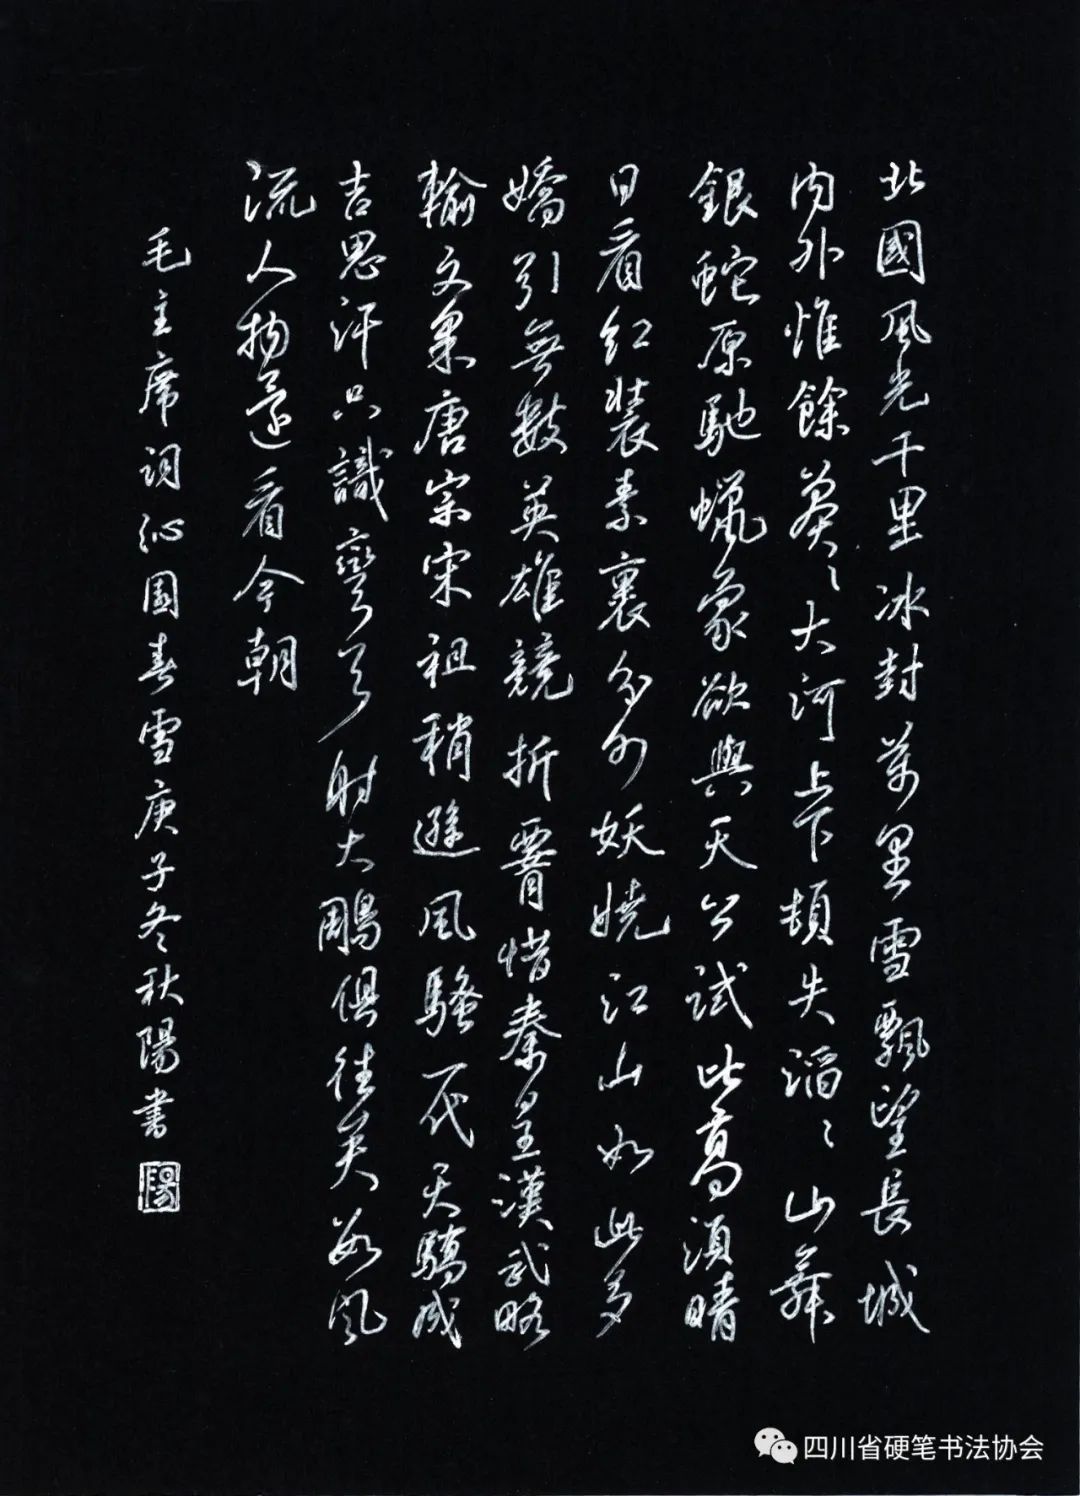 北國風光千里冰封萬里雪飄望長城
内外惟餘莽〻大河上下頓失滔〻山舞
銀蛇原馳蠟象欲與天公試比高須晴
日看红裝素裹分外妖嬈江山如此多
嬌引無數英雄競折腰惜秦皇漢武略
輸文采唐宗宋祖稍遜風騷一代天驕成
吉思汗只識彎弓射大鵰俱往矣數風
流人物還看今朝
毛主席词沁園春雪庚子冬秋陽書
陽
四川省硬笔书法协会